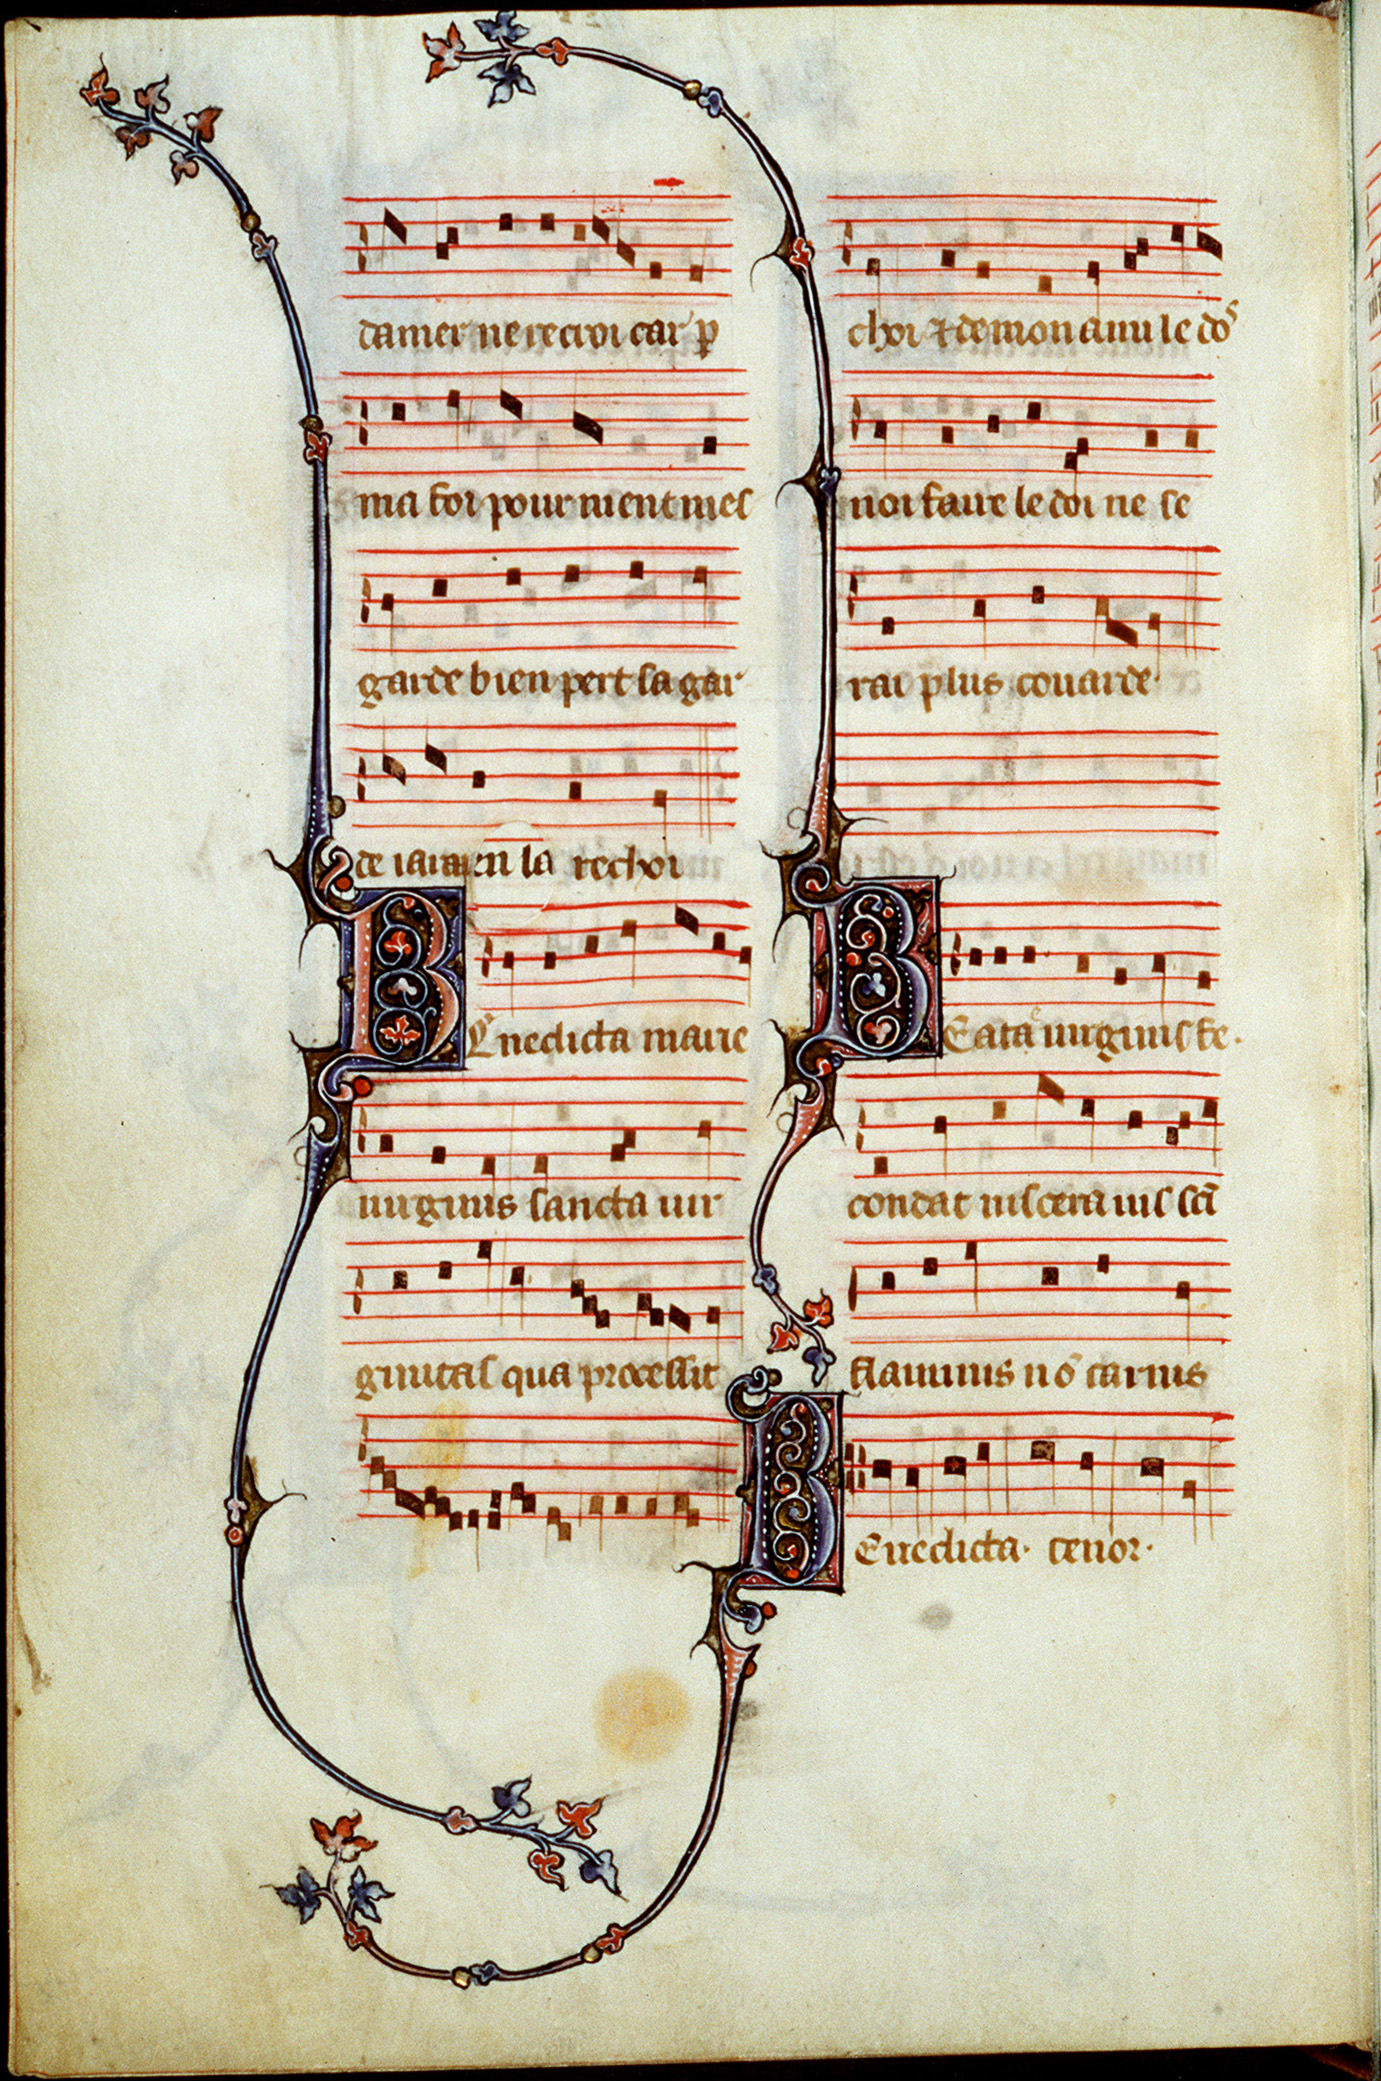 damer ne recroi car p
ma foi pour nient mes
garde bien pert sa gar
de iaiaen la rechoi
BEnedicta marie
uirginis sancta uir
ginitas qua processit
choi et de mon ami le dos
noi faire le doi ne se
rai plus couarde
BEata uirginis fe.
condat uiscera uis sca
flaminis no carnis
BEnedicta. tenor.